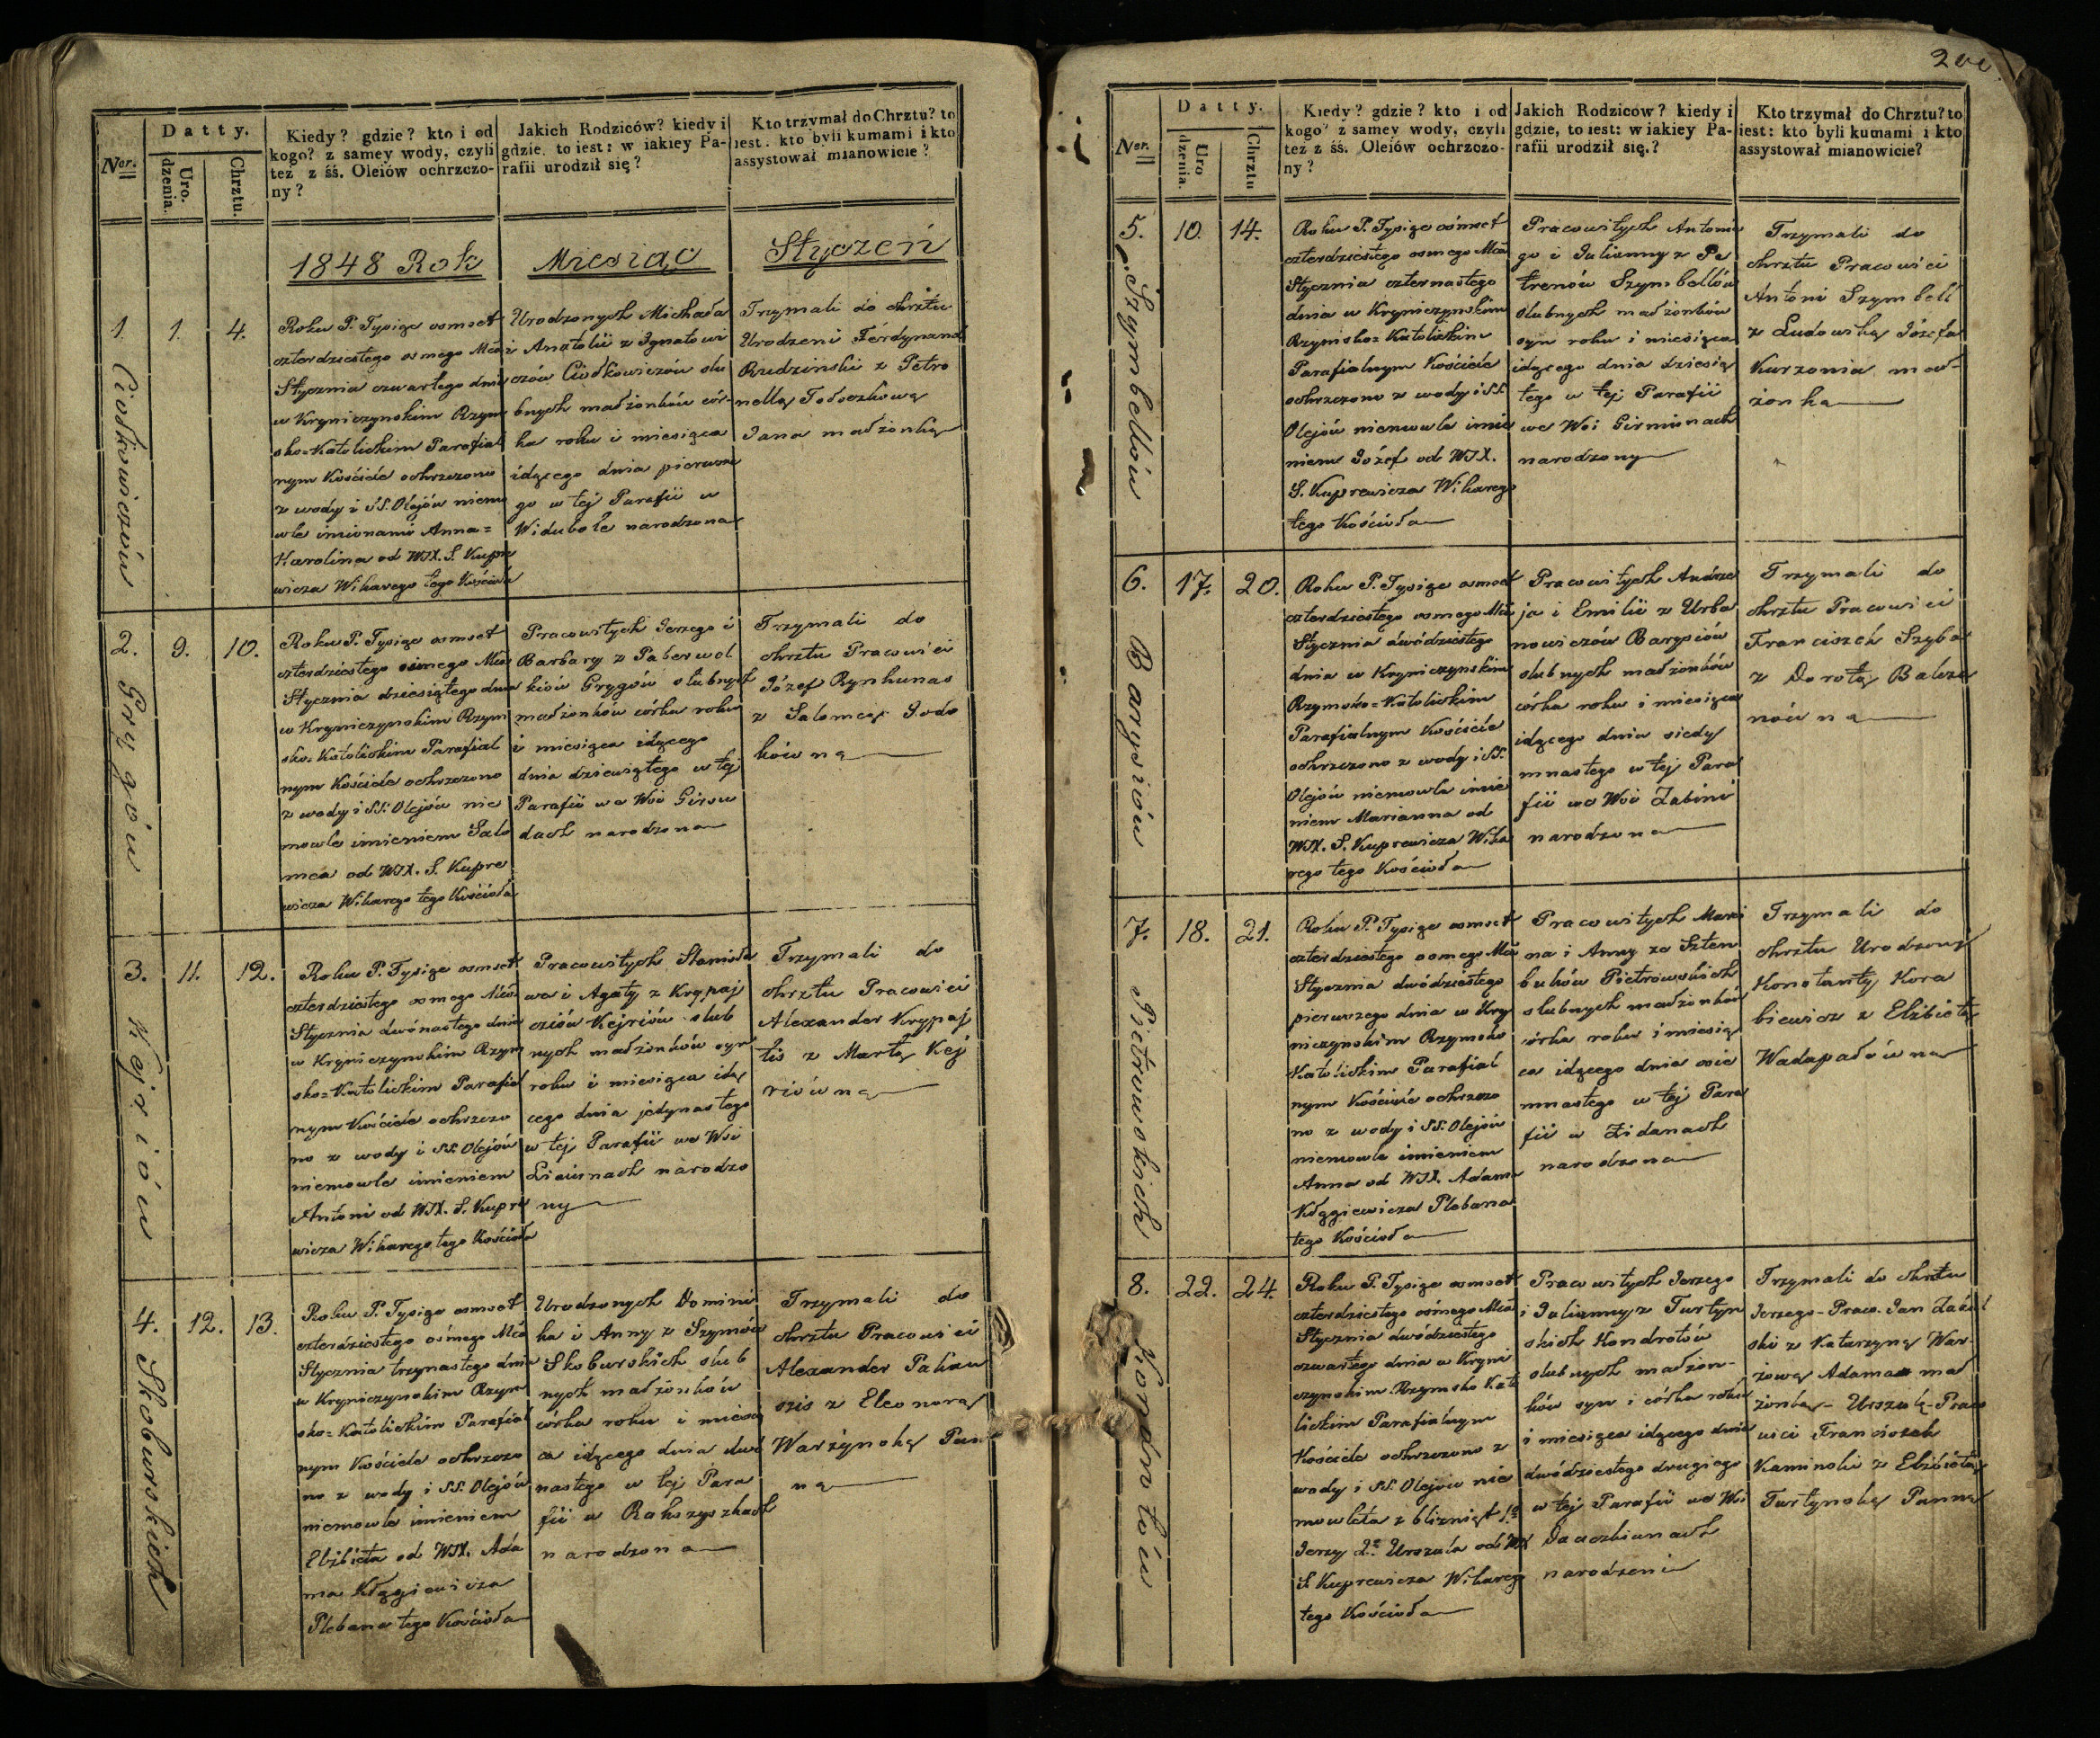 Ner.
Datty.
Uro.
dzenia.
Chrztu.
Kiedy? gdzie? kto i od
kogo? z samey wody, czyli
też z śś. Oleiów ochrzczo-
ny?
Jakich Rodziców? kiedy i
gdzie, to iest: w iakiey Pa-
rafii urodził się?
Kto trzymał do Chrztu? to
iest: kto byli kumami i kto
assystował mianowicie?
1848 Rok Miesiąc Styczeń
1. 1. 4.
Ciodkiewiczów
Roku P. Tysiąc osmset
czterdziestego osmego Mca
Stycznia czwartego dnia
w Kryniczynskim Rzym
sko=Katolickim Parafial
nym Kościele ochrzczono
z wody i SS. Olejów niemo
wle imionami Anna=
Karolina od WJX. S. Kupre
wicza Wikarego tego Kościoła
Urodzonych Michała
i Anatolii z Ignatowi
czów Ciodkowiczów slu
bnych małżonków cór-
ka roku i miesiąca
idącego dnia pierwsze
go w tej Parafii w
Widubole narodzona
Trzymali do chrztu
Urodzeni Ferdynand
Rudzinski z Petro
nellą Tołoczkową
Jana małżonką
2. 9. 10.
Grygów
Roku P. Tysiąc osmset
czterdziestego osmego Mca
Stycznia dziesiątego dnia
w Kryniczynskim Rzym
sko=Katolickim Parafial
nym Kościele ochrzczono
z wody i SS. Olejów nie
mowle imieniem Salo
mea od WJX. S. Kupre
wicza Wikarego tego Kościoła
Pracowitych Jerzego i
Barbary z Paberwol
kiów Grygów slubnych
małżonków córka roku
i miesiąca idącego
dnia dziewiątego w tej
Parafii we Wsi Girsu
dach narodzona
Trzymali do
chrztu Pracowici
Józef Rynkunas
z Salomeą Jodo
kówną
3. 11. 12.
Kejriów
Roku P. Tysiąc osmset
czterdziestego osmego Mca
Stycznia dwónastego dnia
w Kryniczynskim Rzym
sko=Katolickim Parafial
nym Kościele ochrzczo
no z wody i SS. Olejów
niemowle imieniem
Antoni od WJX. S. Kupre
wicza Wikarego tego Kościoła
Pracowitych Stanisła
wa i Agaty z Krypaj
ciów Kejriów slub
nych małżonków syn
roku i miesiąca idą
cego dnia jedynastego
w tej Parafii we Wsi
Liciunach narodzo
ny
Trzymali do
chrztu Pracowici
Alexander Krypaj
tis z Martą Kej
riówną
4. 12. 13.
Skoburskich
Roku P. Tysiąc osmset
czterdziestego ósmego Mca
Stycznia trzynastego dnia
w Kryniczynskim Rzym
sko=Katolickim Parafial
nym Kościele ochrzczo
no z wody i SS. Olejów
niemowle imieniem
Elżbieta od WJX. Ada
ma Kłągiewicza
Plebana tego Kościoła
Urodzonych Domini
ka i Anny z Szymów
Skoburskich slub
nych małżonków
córka roku i miesią
ca idącego dnia dwó
nastego w tej Para
fii w Rokszyszkach
narodzona
Trzymali do
chrztu Pracowici
Alexander Pakau
szis z Eleonorą
Warżynską Pan
ną
Ner.
Datty.
Uro
dzenia.
Chrztu
Kiedy? gdzie? kto i od
kogo? z samey wody, czyli
też z śś. Oleiów ochrzczo-
ny?
Jakich Rodziców? kiedy i
gdzie, to iest: w iakiey Pa-
rafii urodził się.?
Kto trzymał do Chrztu? to
iest: kto byli kumami i kto
assystował mianowicie?
5. 10. 14.
Szymbellów
Roku P. Tysiąc osmset
czterdziestego osmego Mca
Stycznia czternastego
dnia w Kryniczynskim
Rzymsko=Katolickim
Parafialnym Kościele
ochrzczono z wody i SS.
Olejów niemowle imie
niem Józef od WJX.
S. Kuprewicza Wikarego
tego Kościoła
Pracowitych Antonie
go i Julianny z Pe
trenów Szymbellów
slubnych małżonków
syn roku i miesiąca
idącego dnia dziesią
tego w tej Parafii
we Wsi Girniunach
narodzony
Trzymali do
chrztu Pracowici
Antoni Szymbell
z Ludowiką Józefa
Kurzonia mał-
żonką
6. 17. 20.
Barysiów
Roku P. Tysiąc osmset
czterdziestego osmego Mca
Stycznia dwódziestego
dnia w Kryniczynskim
Rzymsko=Katolickim
Parafialnym Kościele
ochrzczono z wody i SS.
Olejów niemowle imie
niem Marianna od
WJX. S. Kuprewicza Wika
rego tego Kościoła
Pracowitych Andrze
ja i Emilii z Urba
nowiczów Barysiów
slubnych małżonków
córka roku i miesiąca
idącego dnia siedy
mnastego w tej Para
fii we Wsi Żabini
narodzona
Trzymali do
chrztu Pracowici
Franciszek Szyba
z Dorotą Balcza
nówną
7. 18. 21.
Pietrowskich
Roku P. Tysiąc osmset
czterdziestego osmego Mca
Stycznia dwódziestego
pierwszego dnia w Kry
niczynskim Rzymsko
Katolickim Parafial
nym Kościele ochrzczo
no z wody i SS. Olejów
niemowle imieniem
Anna od WJX. Adama
Kłągiewicza Plebana
tego Kościoła
Pracowitych Marci
na i Anny ze Szlem
buków Pietrowskich
slubnych małżonków
córka roku i miesią
ca idącego dnia osie
mnastego w tej Para
fii w Żidanach
narodzona
Trzymali do
chrztu Urodzony
Konstanty Kora
biewicz z Elżbietą
Wadapałówną
8. 22. 24.
Kondrotów
Roku P. Tysiąc osmset
czterdziestego ośmego Mca
Stycznia dwódziestego
czwartego dnia w Kryni
czynskim Rzymsko Kato
lickim Parafialnym
Kościele ochrzczono z
wody i SS. Olejów nie
mowlęta z bliźniąt 1e
Jerzy 2e Urszula od WJX
S. Kuprewicza Wikarego
tego Kościoła
Pracowitych Jerzego
i Julianny z Turtyn
skich Kondrotów
slubnych małżon-
ków syn i córka roku
i miesiąca idącego dnia
dwódziestego drugiego
w tej Parafii we Wsi
narodzeni
Trzymali do chrztu
Jerzego - Prac. Jan
ski z Katarzyną War-
żową Adama mał
żonką - Urszulę - Praco
wici Franciszek
Kaminski z Elżbietą
Turtynską Panną